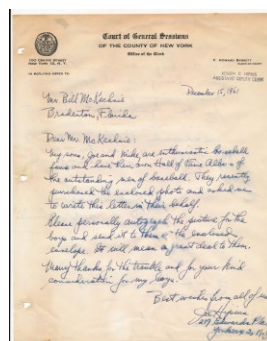 Court of General Sessions
OF THE COUNTY OF NEW YORK
Office of the Clerk
100 CENTRE STREET
NEW YORK 13, N. Y.
IN REPLYING REFER TO
December 15, 1961
Mr Bill McKechnie
Bradenton, Florida
Dear Mr. McKechnie:
My sons, Joe and Mike, are enthusiastic baseball
fans and have their own Hall of Fame Album of
the outstanding men of baseball. They recently
purchased the enclosed photo and asked me
to write this letter in their behalf.
Please personally autograph the picture for the
boys and send it to them in the enclosed
envelope. It will mean a great deal to them.
Many thanks for the trouble and for your kind
consideration for my boys.
Best wishes from all of us
Joe